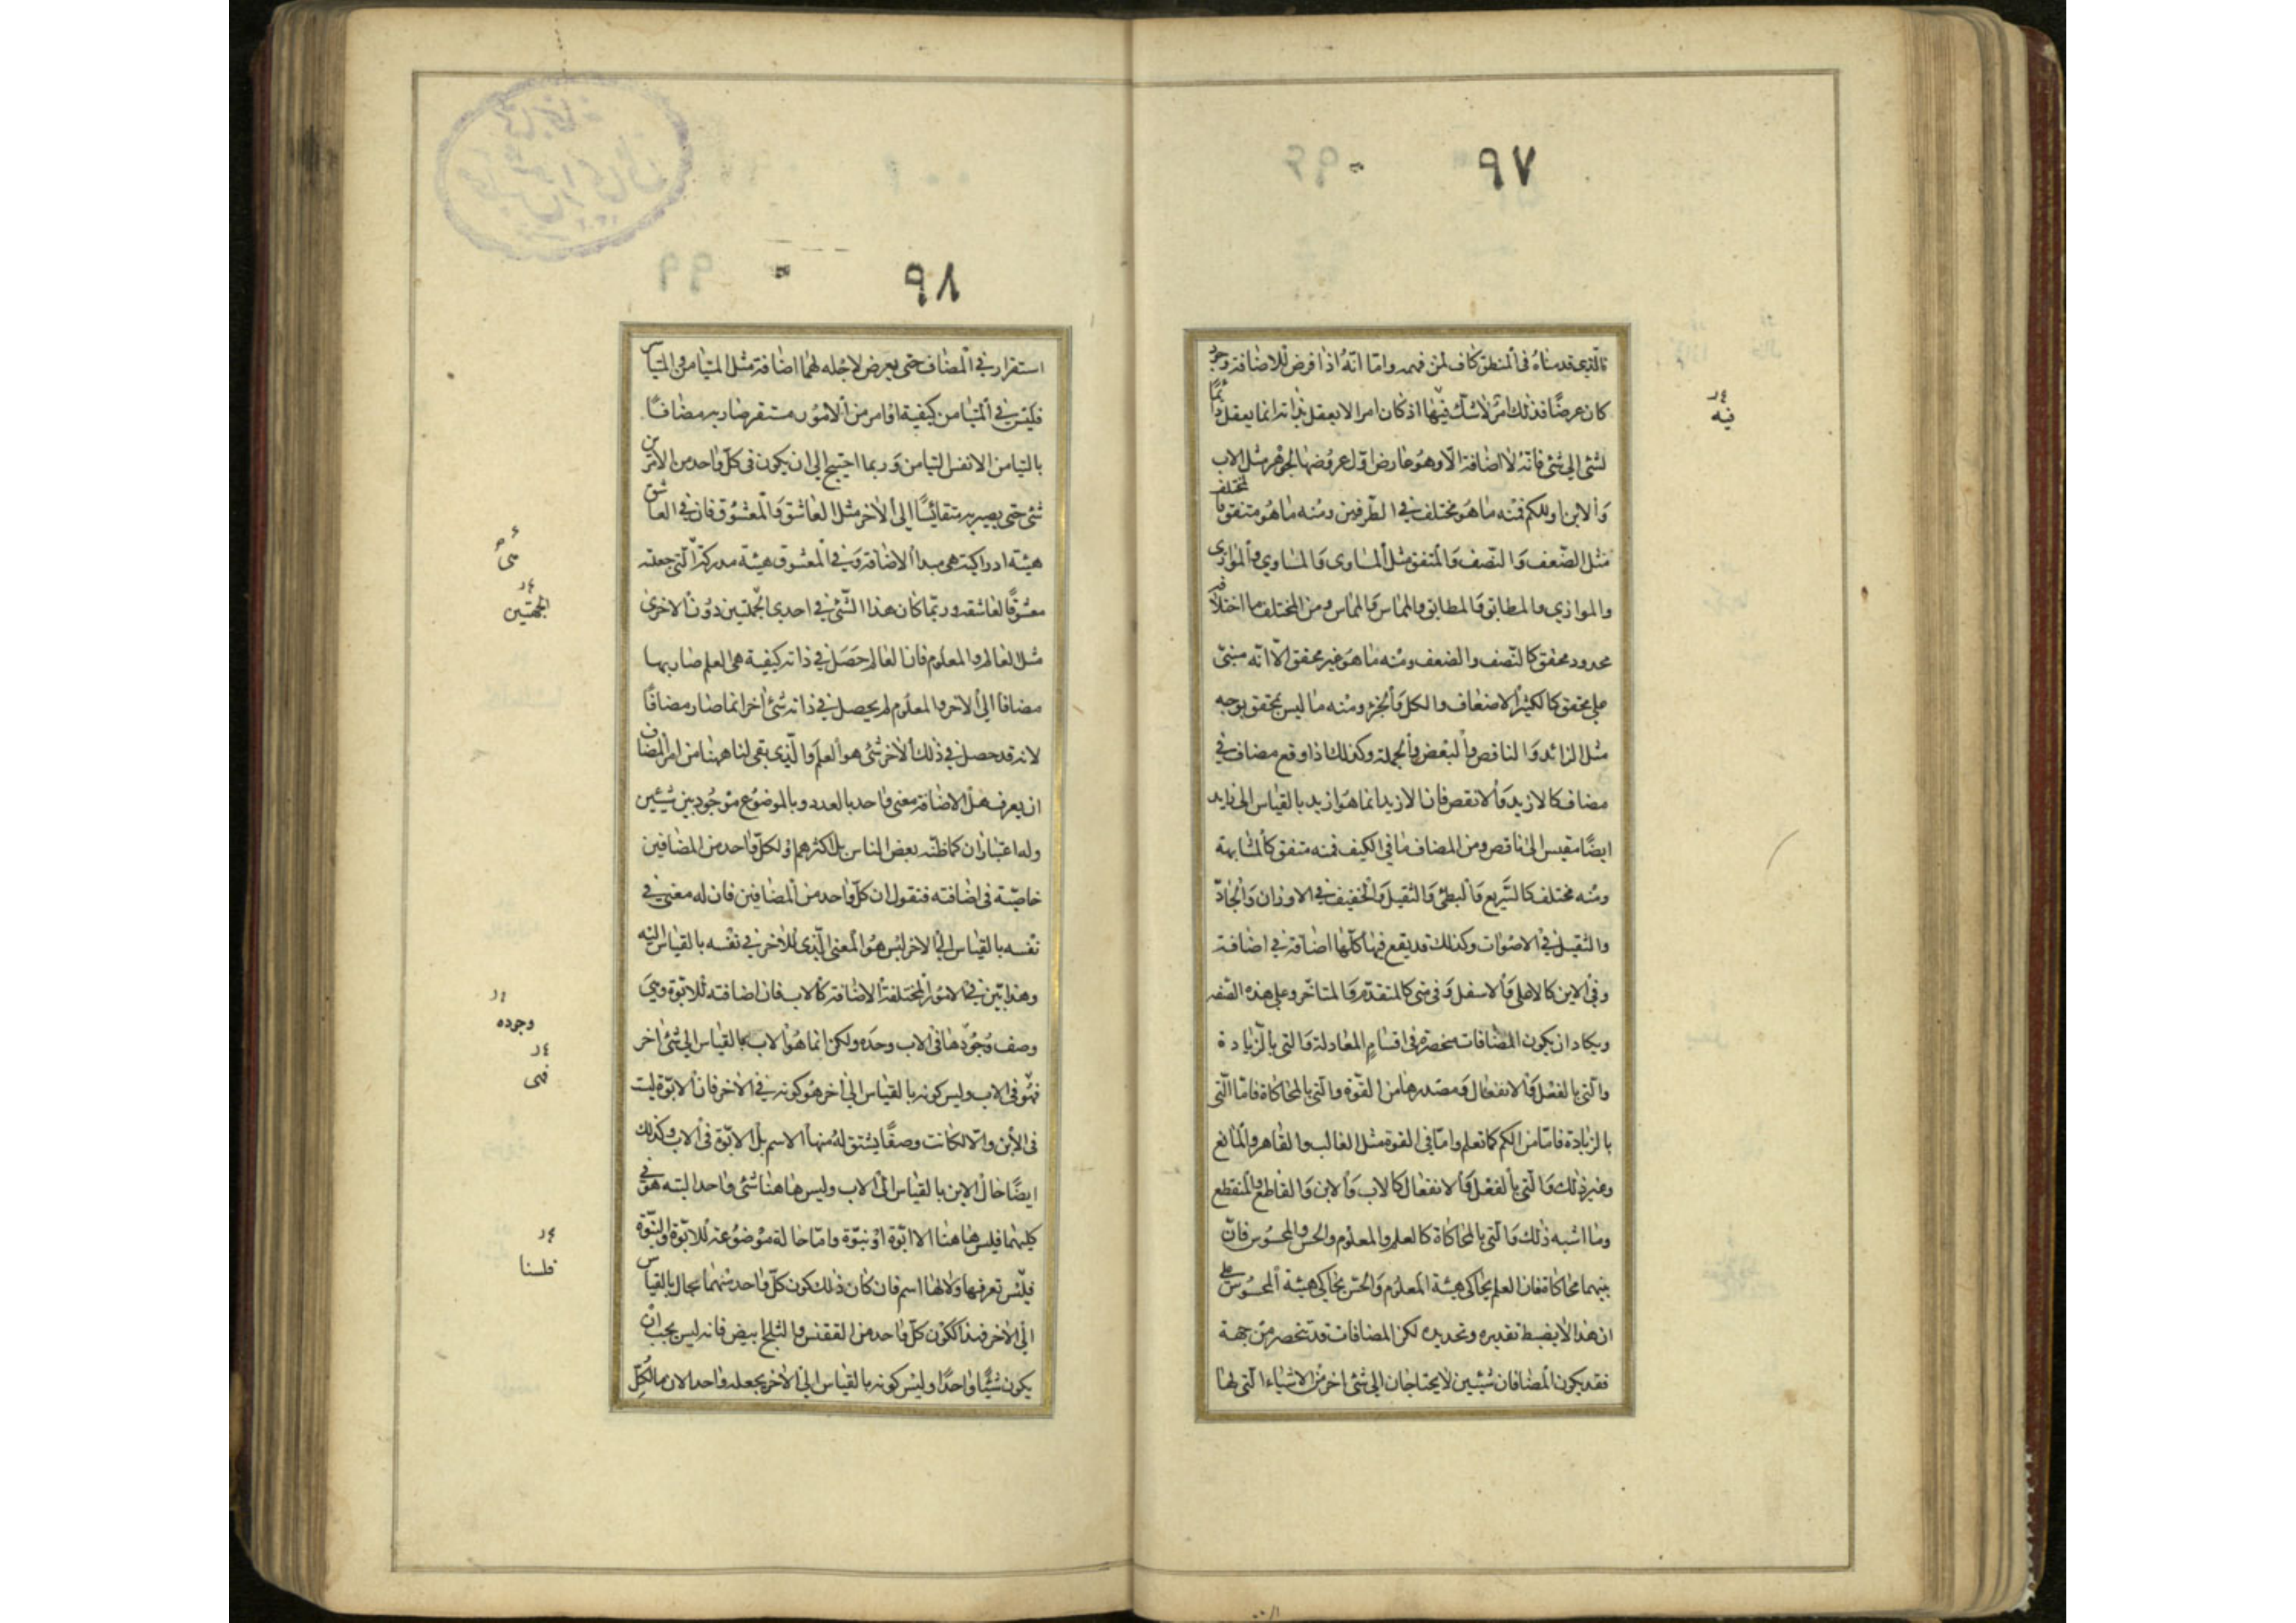 ٩٧
فالذي قدمناه في المنطق كاف لمن فهمه واما انه اذا فرض للاضافة وجود
كان عرضا فذلك امر لا شك فيها اذ كان امرا لا يعقل بذاته انما يعقل دائما
لشئ الي شئ فانه لا اضافة الا وهو عارض اول عروضها للجوهر مثل الاب
والابن او للكم فمنه ما هو مختلف في الطرفين ومنه ما هو متفق فالمختلف
مثل الضعف والنصف والمتفق مثل المساوي والمساوي والموازي
والموازي والمطابق والمطابق والمماس والمماس ومن المختلف ما اختلافه
محدود محقق كالنصف والضعف ومنه ما هو غير محقق الا انه مبني
علي محقق كالكثير الاضعاف والكل والجزء ومنه ما ليس بمحقق بوجه
مثل الزائد والناقص والبعض والجملة وكذلك اذا وقع مضاف في
مضاف كالازيد والانقص فان الازيد انما هو ازيد بالقياس الي زايد
ايضا مقيس الي ناقص ومن المضاف ما في الكيف فمنه متفق كالمشابهة
ومنه مختلف كالسريع والبطئ والثقيل والخفيف في الاوزان والحاد
والثقيل في الاصوات وكذلك قد يقع فيها كلها اضافة في اضافة
وفي الاين كالاعلي والاسفل وفي متي كالمتقدم والمتاخر وعلي هذه الصفة
ويكاد ان يكون المضافات منحصرة في اقسام المعادلة والتي بالزيادة
والتي بالفعل والانفعال ومصدرها من القوة والتي بالمحاكاة فاما التي
بالزيادة فاما من الكم كما تعلم واما في القوة مثل الغالب والقاهر والمانع
وغير ذلك والتي بالفعل والانفعال كالاب والابن والقاطع والمنقطع
وما اشبه ذلك والتي بالمحاكاة كالعلم والمعلوم والحس والمحسوس فان
بينهما محاكاة فان العلم يحاكي هيئة المعلوم والحس يحاكي هيئة المحسوس علي
ان هذا لا يضبط تقديره وتحديده لكن المضافات قد تنحصر من جهة
فقد يكون المضافان شيئين لا يحتاجان الي شئ اخر من الاشياء التي لها
فيه
٩٨
استقرار في المضاف حتي يعرض لاجله لهما اضافة مثل المتيامن والمتياسر
فليس في المتيامن كيفية او امر من الامور مستقر صار به مضافا
بالتيامن الا نفس التيامن وربما احتيج الي ان يكون في كل واحد من الامرين
شئ حتي يصير به متقائسا الي الاخر مثل العاشق والمعشوق فان في العاشق
هيئة ادراكية هي مبدا الاضافة وفي المعشوق هيئة مدركة التي جعلته
معشوقا لعاشقه وربما كان هذا الشئ في احدي الجملتين دون الاخري
مثل العالم والمعلوم فان العالم حصل في ذاته كيفية هي العلم صار بها
مضافا الي الاخر والمعلوم لم يحصل في ذاته شئ اخر انما صار مضافا
لانه قد حصل في ذلك الاخر شئ هو العلم والذي بقي لنا ههنا من امر المضاف
ان يعرف هل الاضافة معني واحد بالعدد وبالموضوع موجود بين شيئين
وله اعتباران كما ظنه بعض الناس بل اكثرهم او لكل واحد من المضافين
خاصية في اضافته فنقول ان كل واحد من المضافين فان له معني في
نفسه بالقياس الي الاخر ليس هو المعني الذي للاخر في نفسه بالقياس اليه
وهذا بين في الامور المختلفة الاضافة كالاب فان اضافته للابوة وهي
وصف وجودها في الاب وحده ولكن انما هو الاب بالقياس الي شئ اخر
فهو في الاب وليس كونه بالقياس الي اخر هو كونه في الاخر فان الابوة ليست
في الابن والا لكانت وصفا يشتق له منها الاسم بل الابوة في الاب وكذلك
ايضا حال الابن بالقياس الي الاب وليس هاهنا شئ واحد البته هو في
كليهما فليس هاهنا الا ابوة او نبوة واما حالة موضوعة للابوة والنبوة
فليس تعرفها ولا لها اسم فان كان ذلك كون كل واحد منهما بحال بالقياس
الي الاخر فهذا ككون كل واحد من الققنس والثلج ابيض فانه ليس يجب ان
يكون شيئا واحدا وليس كونه بالقياس الي الاخر يجعله واحدا لان ما لكل
الجهتين
وجوده
فهي
فلسنا